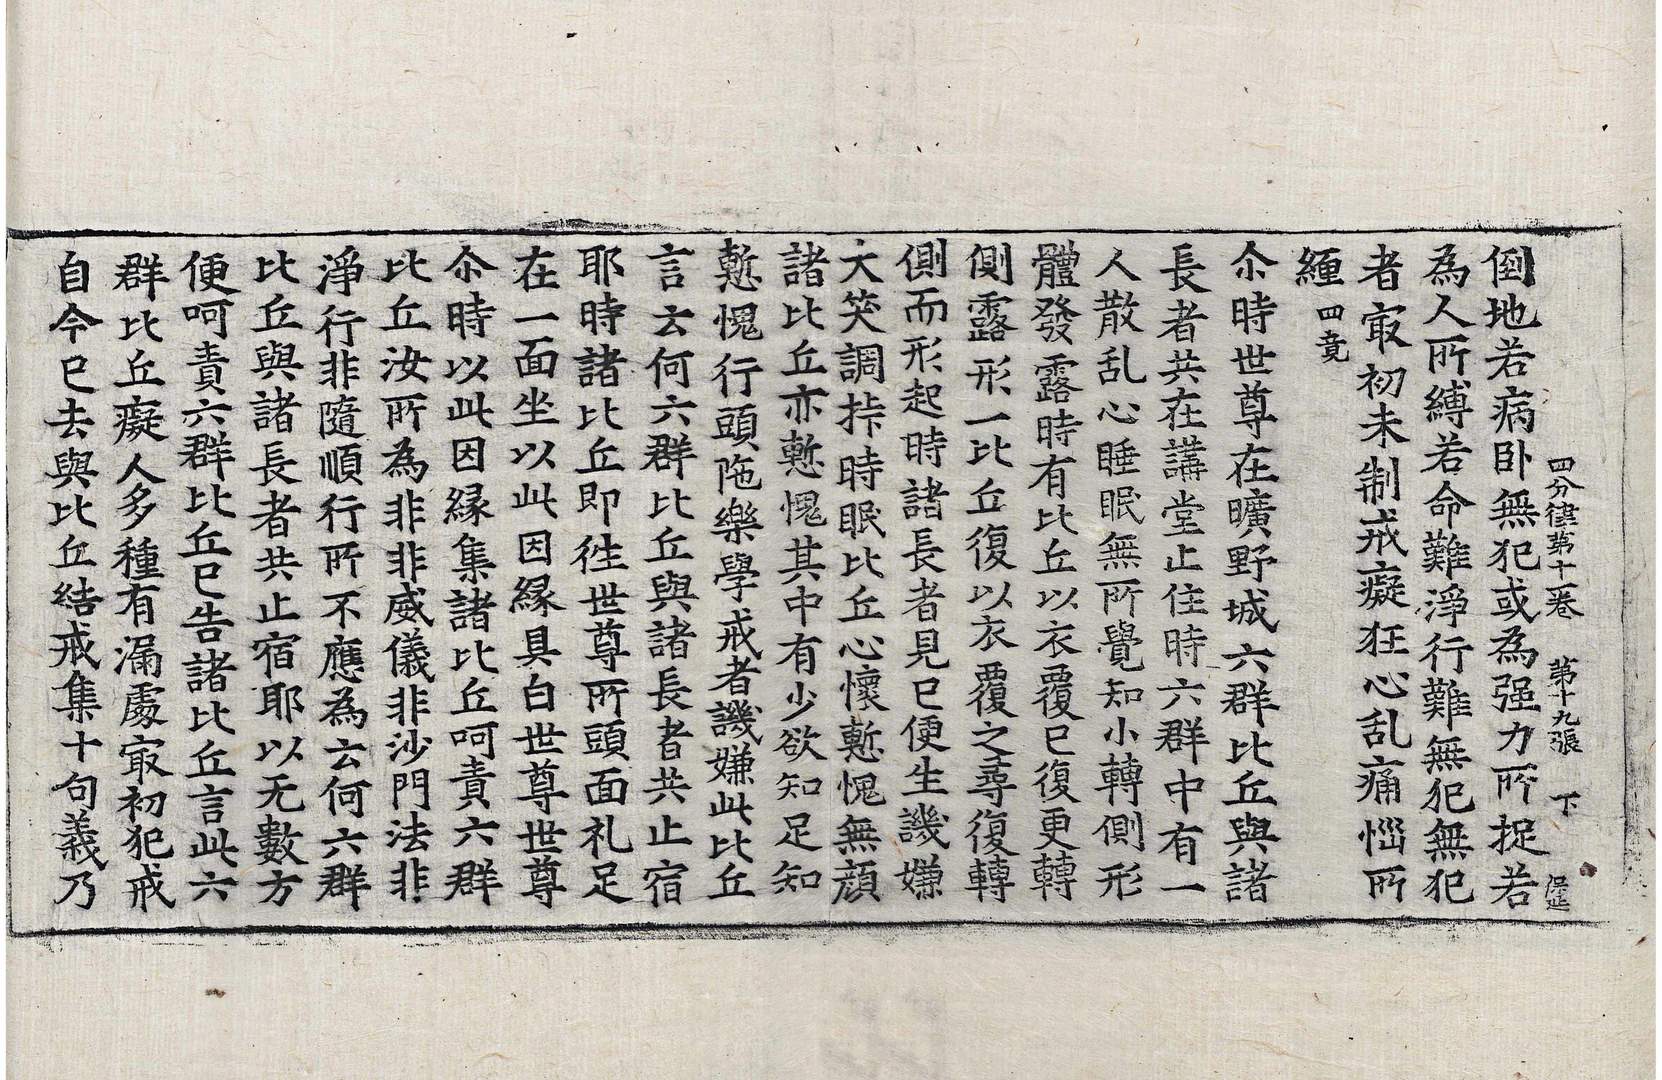 四分律第十一卷 第十九張 下
倒地若病卧無犯或為强力所捉若
為人所縛若命難淨行難無犯無犯
者㝡初未制戒癡狂心乱痛惱所
纏四竟
尒時世尊在曠野城六群比丘與諸
長者共在講堂止住時六群中有一
人散乱心睡眠無所覺知小轉側形
體發露時有比丘以衣覆已復更轉
側露形一比丘復以衣覆之尋復轉
側而形起時諸長者見已便生譏嫌
大笑調挊時眠比丘心懷慙愧無顔
諸比丘亦慙愧其中有少欲知足知
慙愧行頭陁樂學戒者譏嫌此比丘
言云何六群比丘與諸長者共止宿
耶時諸比丘即徃世尊所頭面礼足
在一面坐以此因縁具白世尊世尊
尒時以此因縁集諸比丘呵責六群
比丘汝所為非非威儀非沙門法非
淨行非隨順行所不應為云何六群
比丘與諸長者共止宿耶以无數方
便呵責六群比丘已告諸比丘言此六
群比丘癡人多種有漏處㝡初犯戒
自今已去與比丘結戒集十句義乃